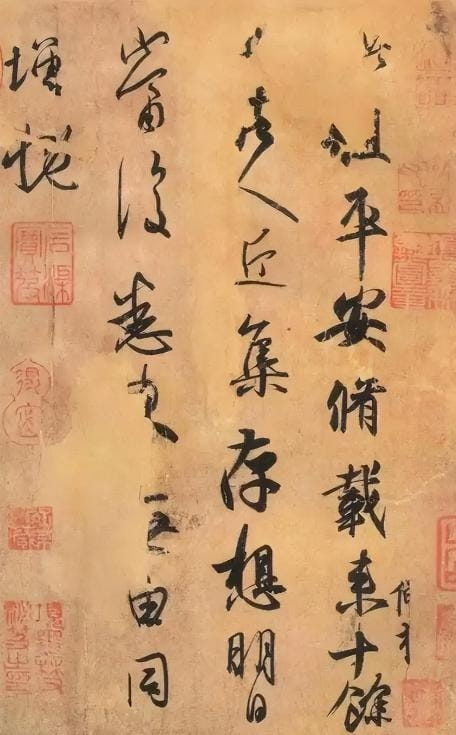 此粗平安脩載来十餘
日諸人近集存想明日
當復悉来無由同
增慨